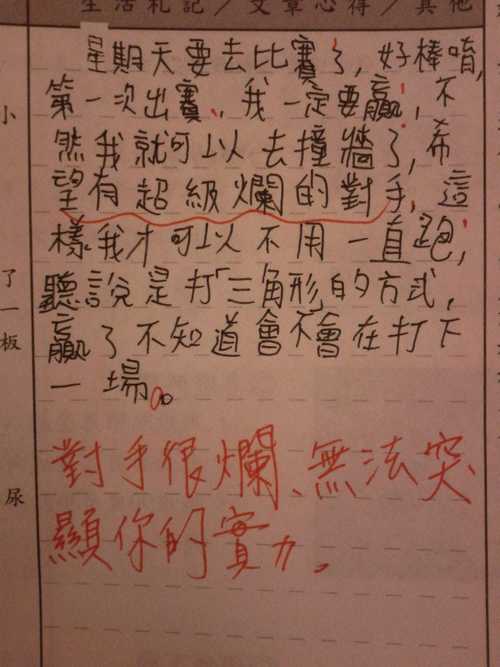 生活札記／文章心得／其他
星期天要去比賽了，好棒唷，
第一次出賽，我一定要贏，不
然我就可以去撞牆了，希
望有超級爛的對手，這
樣我才可以不用一直跑，
聽說是打「三角形」的方式，
贏了不知道會不會在打下
一場。
對手很爛、無法突
顯你的實力。
小
了一板
尿